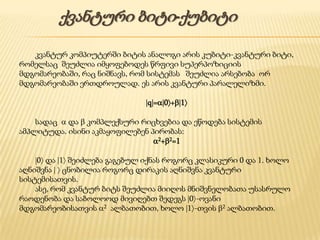 ქვანტური ბიტი-ქუბიტი
კვანტურ კომპიუტერში ბიტის ანალოგი არის კუბიტი-კვანტური ბიტი,
რომელსაც შეუძლია იმყოფებოდეს წრფივი სუპერპოზიციის
მდგომარეობაში, რაც ნიშნავს, რომ სისტემას შეუძლია არსებობა ორ
მდგომარეობაში ერთდროულად. ეს არის კვანტური პარალელიზმი.
|q|=α|0⟩+β|1⟩
სადაც α და β კომპლექსური რიცხვებია და ეწოდება სისტემის
ამპლიტუდა. ისინი აკმაყოფილებენ პირობას:
α²+β²=1
|0⟩ და |1⟩ შეიძლება გაგებულ იქნას როგორც კლასიკური 0 და 1. ხოლო
აღნიშვნა | ⟩ ცნობილია როგორც დირაკის აღნიშვნა კვანტური
სისტემისათვის.
ასე, რომ კვანტურ ბიტს შეუძლია მიიღოს მნიშვნელობათა უსასრულო
რაოდენობა და საბოლოოდ მივიღებთ შედეგს |0⟩-ოვანი
მდგომარეობისათვის α² ალბათობით, ხოლო |1⟩-თვის β² ალბათობით.